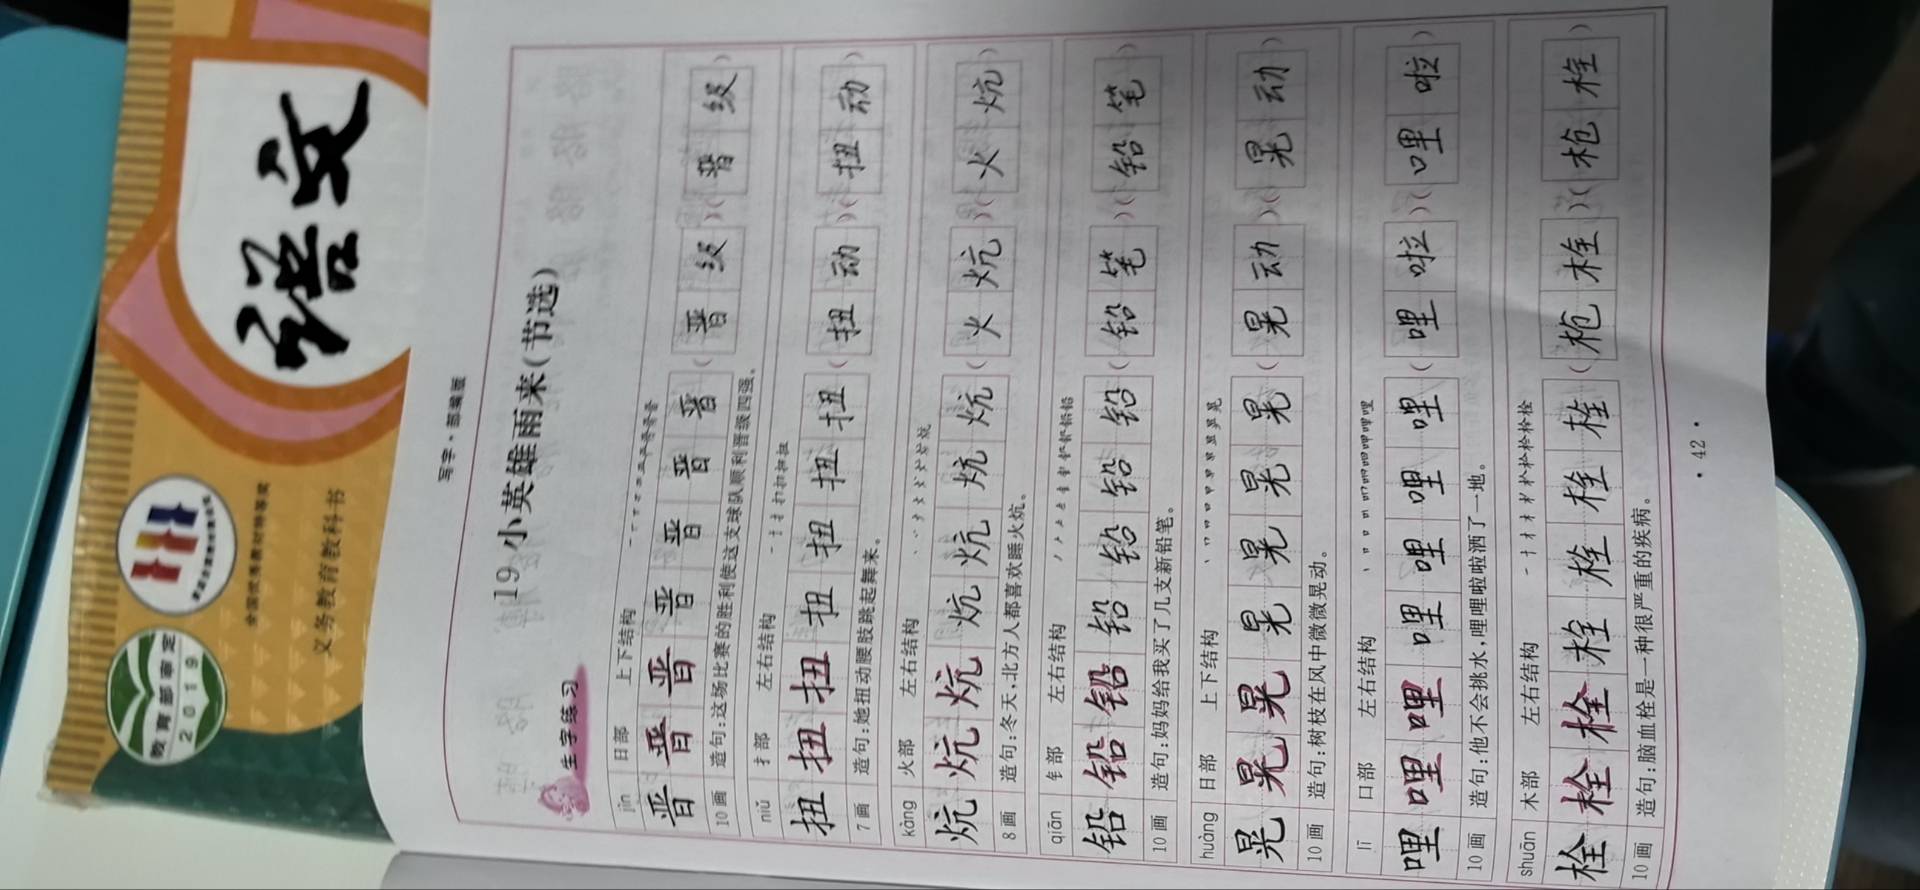 语文
教育部审定
2019
全国优秀教材特等奖
义务教育教科书
写字·部编版
19 小英雄雨来(节选)
生字练习
jìn 日部 上下结构
晋 晋 晋 晋 晋 晋 晋 (晋级)(晋级)
10画 造句:这场比赛的胜利使这支球队顺利晋级四强。
niǔ 扌部 左右结构
扭 扭 扭 扭 扭 扭 扭 (扭动)(扭动)
7画 造句:她扭动腰肢跳起舞来。
kàng 火部 左右结构
炕 炕 炕 炕 炕 炕 炕 (火炕)(火炕)
8画 造句:冬天,北方人都喜欢睡火炕。
qiān 钅部 左右结构
铅 铅 铅 铅 铅 铅 铅 (铅笔)(铅笔)
10画 造句:妈妈给我买了几支新铅笔。
huàng 日部 上下结构
晃 晃 晃 晃 晃 晃 晃 (晃动)(晃动)
10画 造句:树枝在风中微微晃动。
lī 口部 左右结构
哩 哩 哩 哩 哩 哩 哩 (哩啦)(哩啦)
10画 造句:他不会挑水,哩哩啦啦洒了一地。
shuān 木部 左右结构
栓 栓 栓 栓 栓 栓 栓 (枪栓)(枪栓)
10画 造句:脑血栓是一种很严重的疾病。
·42·